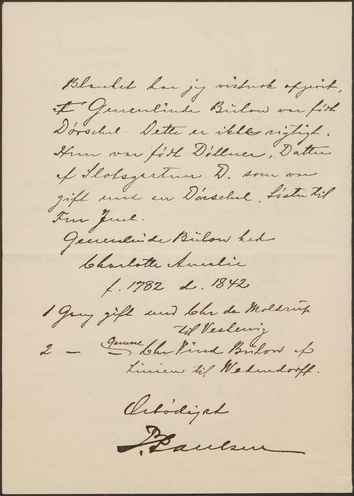 Blanket har jeg vistnok opgivet,
at Generalinde Bülow var født
Dørschel. Dette er ikke rigtigt.
Hun var født Döllner, Datter
af Slotsgartner D. som var
gift med en Dørschel, Søster til
Fru Juel.
Generalinde Bülow hed
Charlotte Amalie
f. 1782 d. 1842
1 Gang gift med Chr de Moldrup
til Vestervig
2 — General Chr Bülow af
Linien til Wedendorff.
Ærbødigst
P. Paulsen